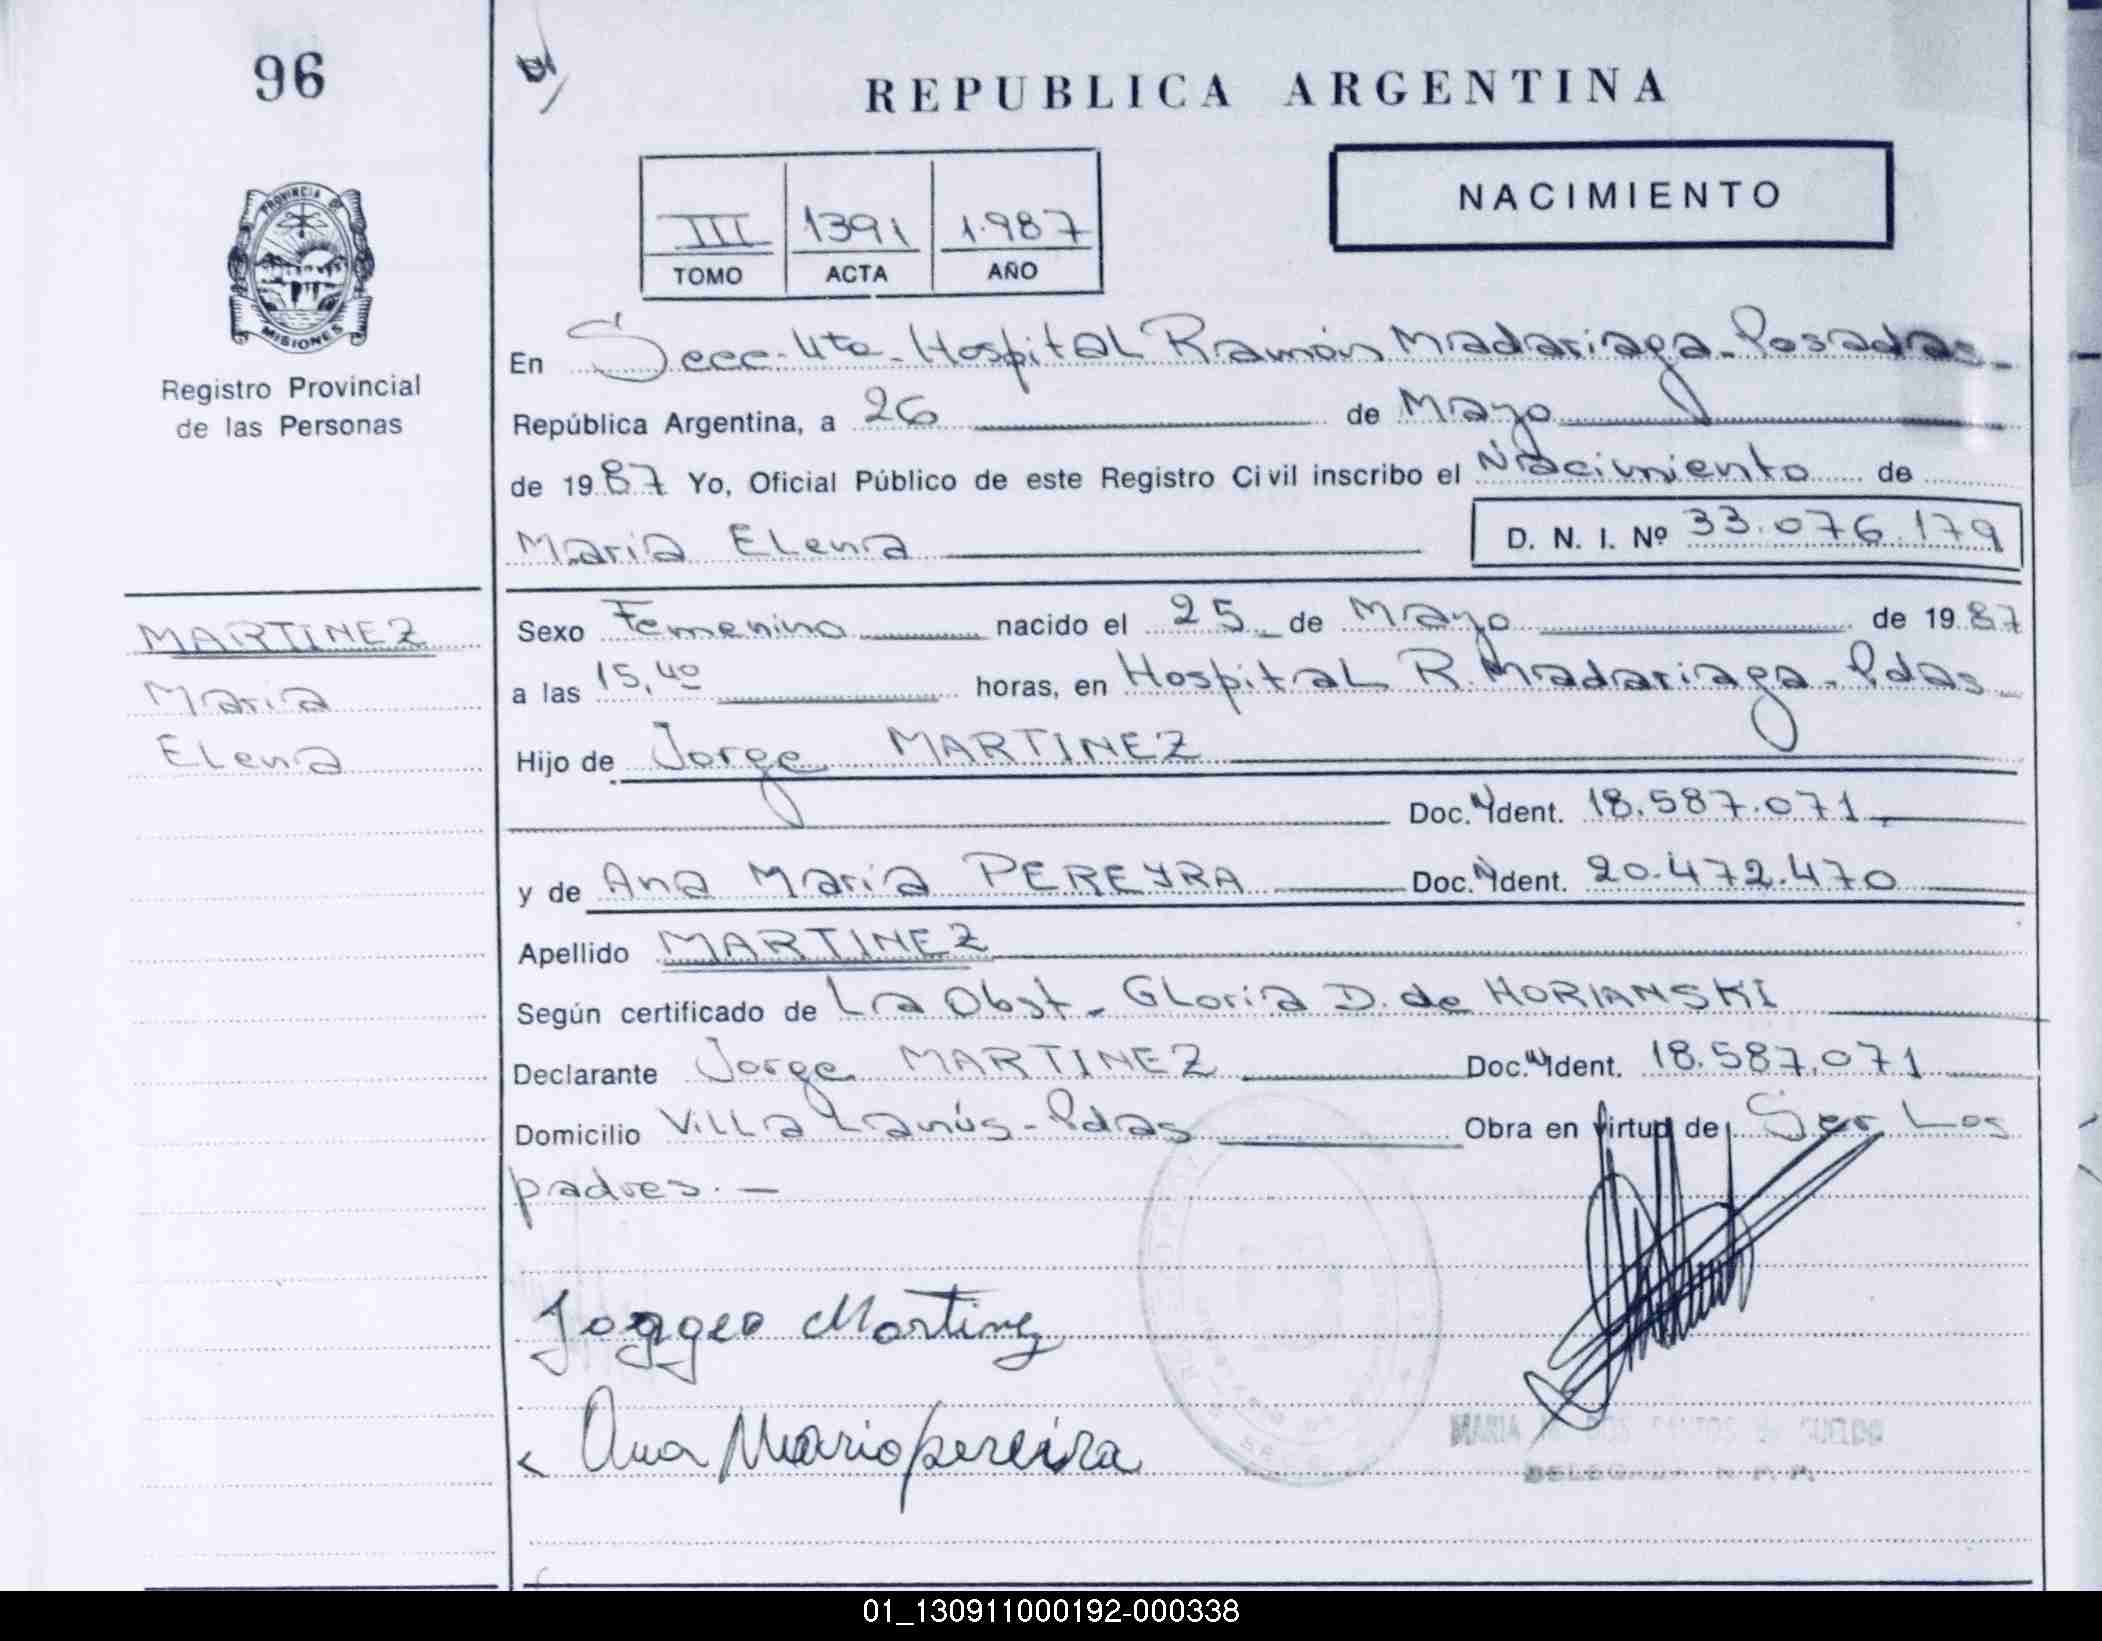 96
REPUBLICA ARGENTINA
NACIMIENTO
III 1391 1.987
TOMO ACTA AÑO
PROVINCIA DE
MISIONES
Registro Provincial
de las Personas
En Secc. 4ta - Hospital Ramón Madariaga - Posadas -
República Argentina, a 26 de Mayo
de 1987 Yo, Oficial Público de este Registro Civil inscribo el Nacimiento de
Maria Elena D. N. I. Nº 33.076.179
MARTINEZ
Maria
Elena
Sexo Femenino nacido el 25 de Mayo de 1987
a las 15,40 horas, en Hospital R. Madariaga - Pdas -
Hijo de Jorge MARTINEZ
Doc. N Ident. 18.587.071
y de Ana María PEREYRA Doc. N Ident. 20.472.470
Apellido MARTINEZ
Según certificado de La Obst - Gloria D. de HORIANSKI
Declarante Jorge MARTINEZ Doc. N Ident. 18.587.071
Domicilio Villa Lanús - Pdas Obra en virtud de Ser Los
padres. -
Martinez
Ana Maria pereira
MARIA DOS SANTOS SUELDO
01_130911000192-000338